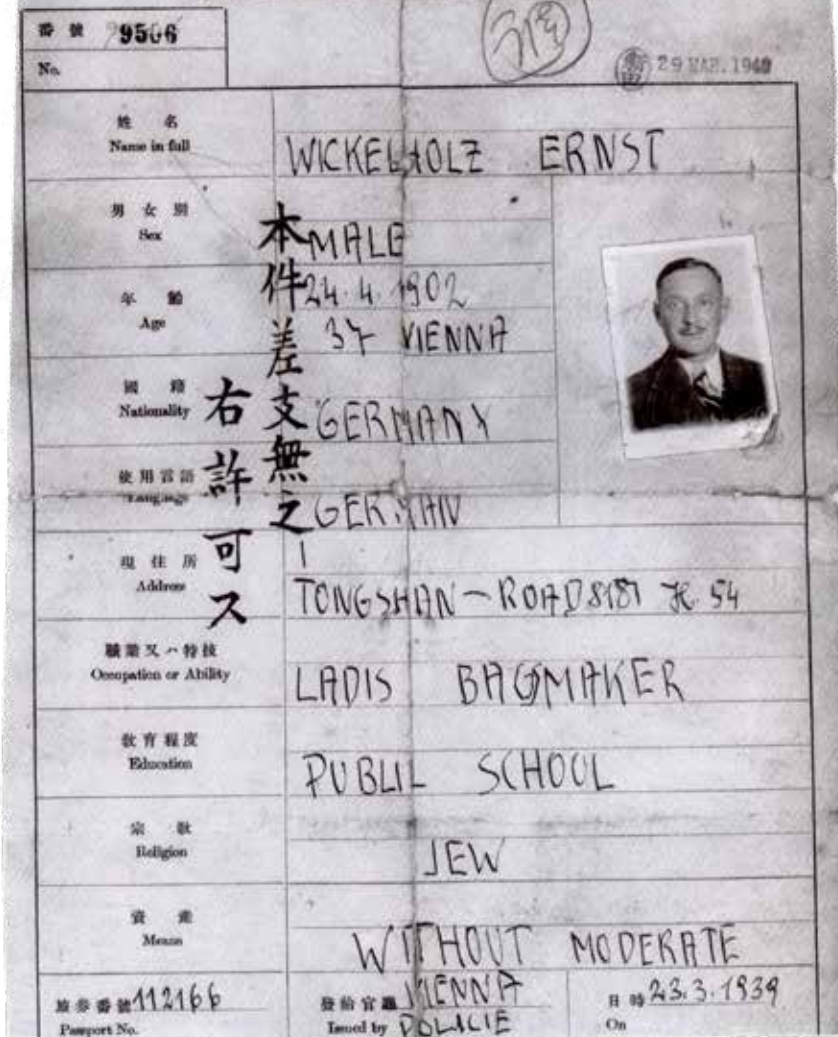 番號 9506
No.
29 MAR. 1940
姓名
Name in full
WICKELHOLZ ERNST
男女別
Sex
MALE
年齡
Age
24.4.1902
37 VIENNA
國籍
Nationality
GERMANY
使用言語
Language
GERMAN
現住所
Address
TONGSHAN-ROAD 818 H. 54
職業又ハ特技
Occupation or Ability
LADIS BAGMAKER
敎育程度
Education
PUBLIC SCHOOL
宗敎
Religion
JEW
資產
Means
WITHOUT MODERATE
旅券番號 112166
Passport No.
發給官廳 VIENNA
Issued by POLICIE
日時 23.3.1939
On
本件差支無之
右許可ス